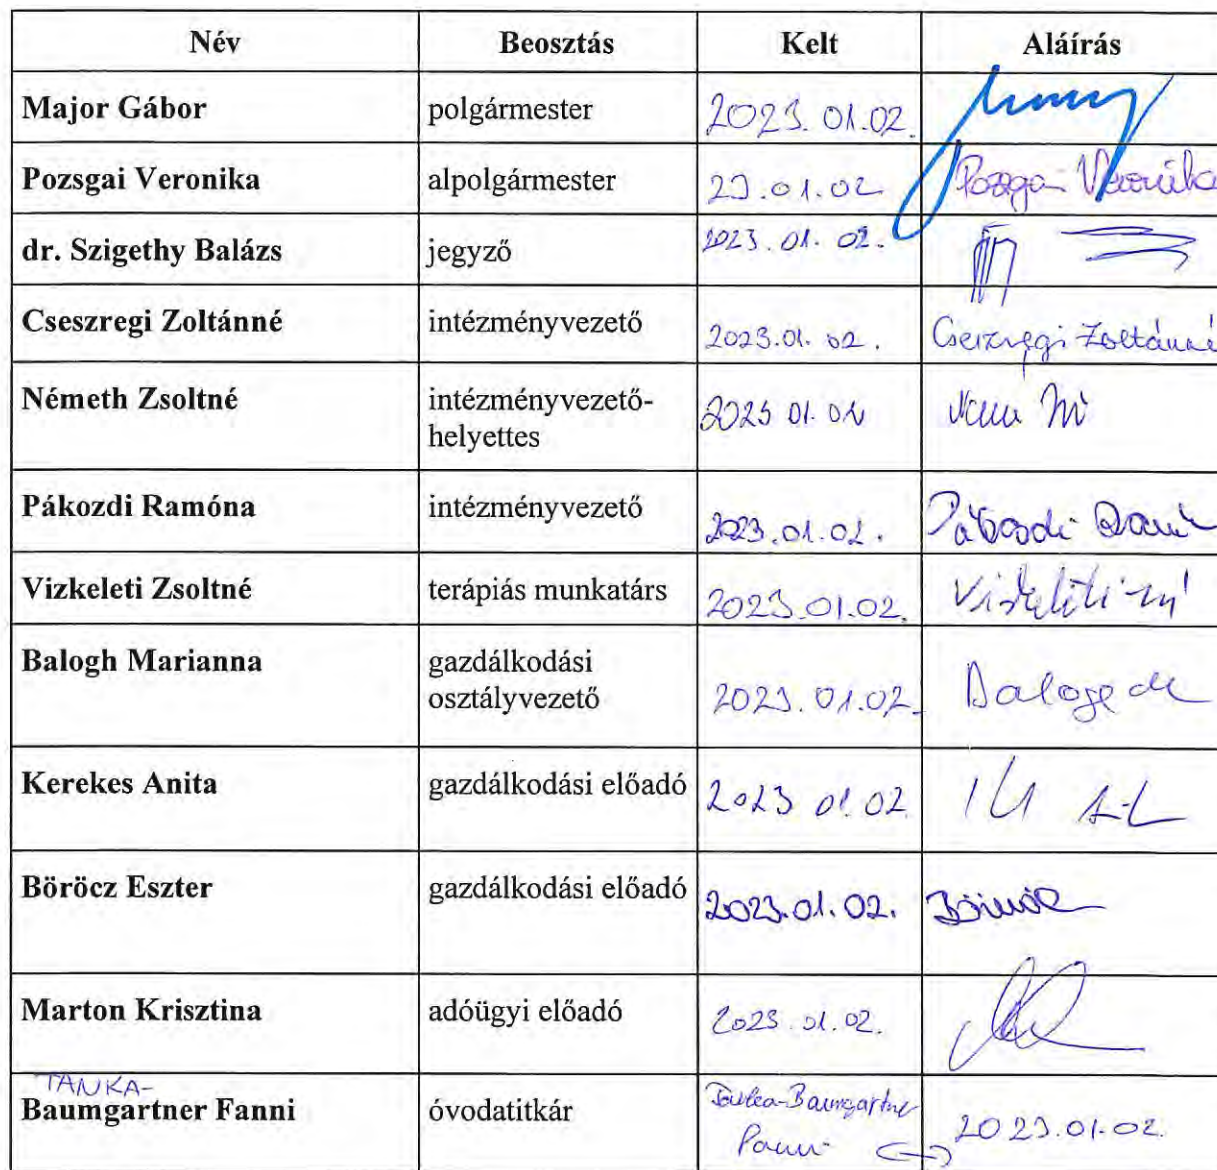 Név Beosztás Kelt Aláírás
Major Gábor polgármester 2023. 01.02.
Pozsgai Veronika alpolgármester 23.01.02 Pozsgai Veronika
dr. Szigethy Balázs jegyző 2023.01.02.
Cseszregi Zoltánné intézményvezető 2023.01.02. Cseszregi Zoltánné
Németh Zsoltné intézményvezető-
helyettes 2023 01.02
Pákozdi Ramóna intézményvezető 2023.01.02.
Vizkeleti Zsoltné terápiás munkatárs 2023.01.02.
Balogh Marianna gazdálkodási
osztályvezető 2023.01.02.
Kerekes Anita gazdálkodási előadó 2023 01.02
Böröcz Eszter gazdálkodási előadó 2023.01.02.
Marton Krisztina adóügyi előadó 2023.01.02.
TANKA-
Baumgartner Fanni óvodatitkár Tanka-Baumgartner
Fanni 2023.01.02.